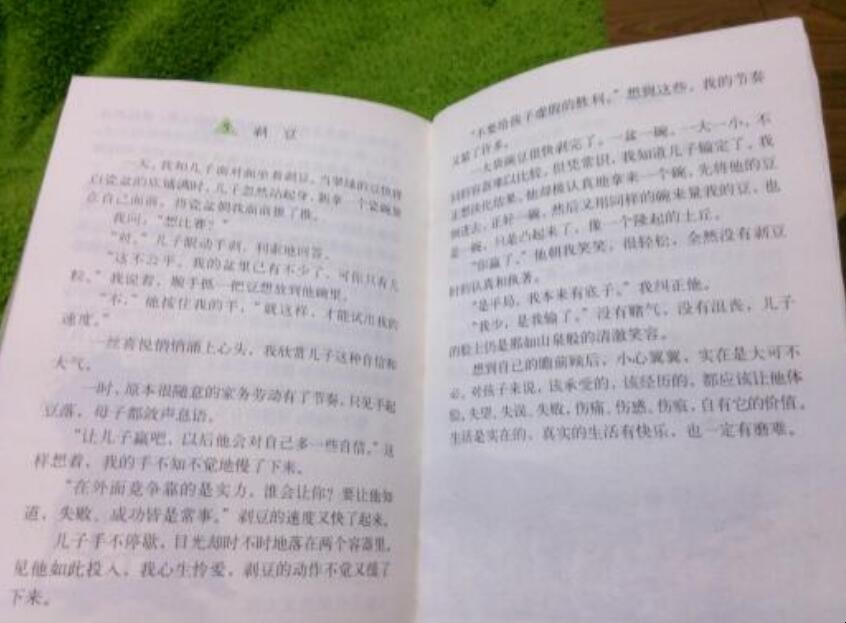 剥豆
一天,我和儿子面对面坐着剥豆。当翠绿的豆快将
白瓷盆的底铺满时,儿子忽然站起身,新拿一个瓷碗放
在自己面前,将瓷盆朝我面前推了推。
我问:“想比赛?”
“对。”儿子眼动手剥,利索地回答。
“这不公平。我的盆里已有不少了,可你只有几
粒。”我说着,顺手抓一把豆想放到他碗里。
“不,”他按住我的手,“就这样,才能试出我的
速度。”
一丝喜悦悄悄涌上心头,我欣赏儿子这种自信和
大气。
一时,原本很随意的家务劳动有了节奏,只见手起
豆落,母子都敛声息语。
“让儿子赢吧,以后他会对自己多一些自信。”这
样想着,我的手不知不觉地慢了下来。
“在外面竞争靠的是实力,谁会让你?要让他知
道,失败、成功皆是常事。”剥豆的速度又快了起来。
儿子手不停歇,目光却时不时地落在两个容器里。
见他如此投入,我心生怜爱,剥豆的动作不觉又缓了
下来。
“不要给孩子虚假的胜利。”想到这些,我的节奏
又紧了许多。
一大袋豌豆很快剥完了。一盆一碗,一大一小,不
同的容器难以比较,但凭常识,我知道儿子输定了。我
正想淡化结果,他却极认真地拿来一个碗,先将他的豆
倒进去,正好一碗,然后又用同样的碗来量我的豆,也
是一碗,只是凸起来了,像一个隆起的土丘。
“你赢了。”他朝我笑笑,很轻松,全然没有剥豆
时的认真和执著。
“是平局,我本来有底子。”我纠正他。
“我少,是我输了。”没有赌气,没有沮丧,儿子
的脸上仍是那如山泉般的清澈笑容。
想到自己的瞻前顾后,小心翼翼,实在是大可不
必。对孩子来说,该承受的,该经历的,都应该让他体
验。失望、失误、失败,伤痛、伤感、伤痕,自有它的价值。
生活是实在的,真实的生活有快乐,也一定有磨难。